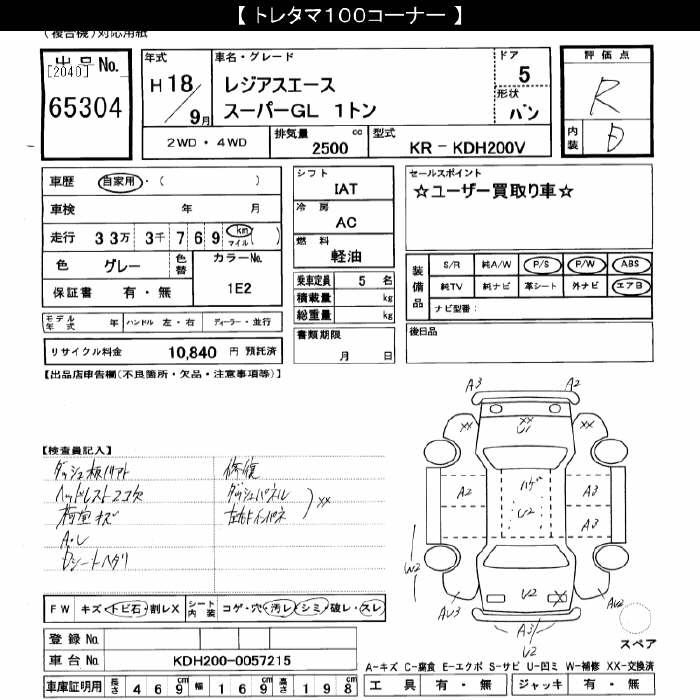 【 トレタマ100コーナー 】
(複合機)対応用紙
出品No.
[2040]
65304
年式
H18/9月
車名・グレード
レジアスエース
スーパーGL 1トン
ドア
5
形状
バン
評価点
R
内装
D
2WD・4WD
排気量 2500 cc
型式 KR-KDH200V
車歴 自家用・( )
車検 年 月
走行 33万 3千 769 km マイル ( )
色 グレー
色替
カラーNo.
1E2
保証書 有・無
モデル年式 年 ハンドル 左・右 ディーラー・並行
リサイクル料金 10,840 円 預託済
シフト
IAT
冷房
AC
燃料
軽油
乗車定員 5 名
積載量 kg
総重量 kg
書類期限
月 日
セールスポイント
☆ユーザー買取り車☆
装備品
S/R 純A/W P/S P/W ABS
純TV 純ナビ 革シート 外ナビ エアB
ナビ型番:
後日品
【出品店申告欄(不良箇所・欠品・注意事項等)】
【検査員記入】
ヘッドレスト2コ欠
荷室キズ
A・U
Dシートヘタリ
修復
ダッシュパネル
左右インパネ
XX
A3 A2
XX XX U1 XX
A2 ハゲ U2 A3
A3
W2
AU3 U2 X AU2
A3
U2
スペア
FW キズ・トビ石・割レX シート内装 コゲ・穴・汚レ・シミ・破レ・スレ
登録No.
車台No. KDH200-0057215
車庫証明用 長さ 469 cm 幅 169 cm 高さ 198 cm
A-キズ C-腐食 E-エクボ S-サビ U-凹ミ W-補修 XX-交換済
工具 有・無 ジャッキ 有・無